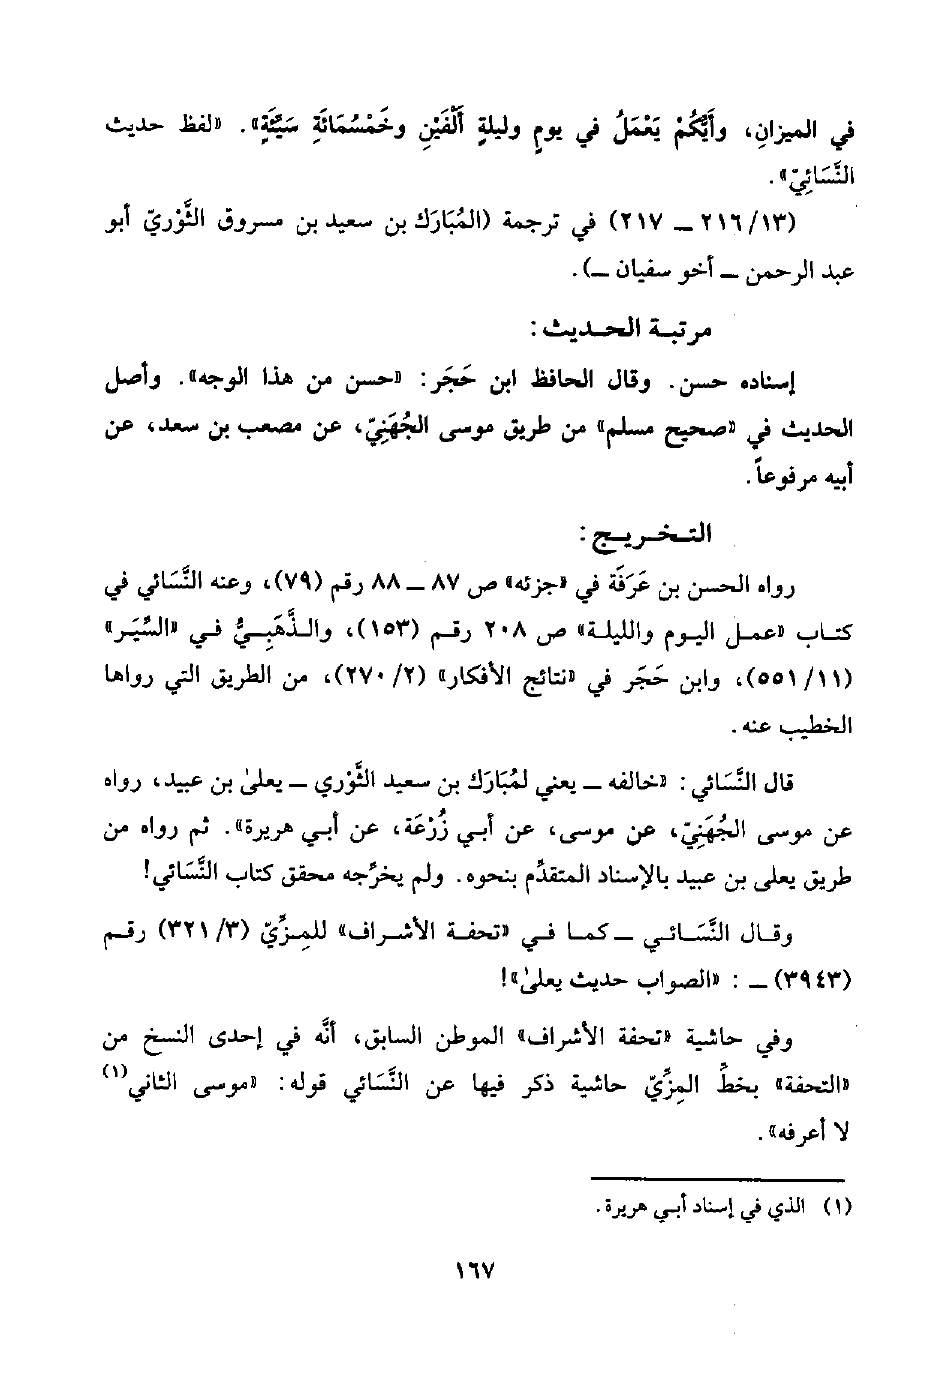 في الميزانِ، وأَيُّكُمْ يَعْمَلُ في يومٍ وليلةٍ أَلْفَيْنِ وخَمْسُمَائَةِ سَيِّئَةٍ». «لفظ حديث
النَّسَائِيّ».
(١٣/ ٢١٦ ــ ٢١٧) في ترجمة (المُبَارَك بن سعيد بن مسروق الثَّوْريّ أبو
عبد الرحمن ــ أخو سفيان ــ).
مرتبـة الحـديث:
إسناده حسن. وقال الحافظ ابن حَجَر: «حسن من هذا الوجه». وأصل
الحديث في «صحيح مسلم» من طريق موسى الجُهَنِيّ، عن مصعب بن سعد، عن
أبيه مرفوعاً.
التـخـريـج:
رواه الحسن بن عَرَفَة في «جزئه» ص ٨٧ ــ ٨٨ رقم (٧٩)، وعنه النَّسَائي في
كتـاب «عمـل اليـوم والليلـة» ص ٢٠٨ رقـم (١٥٣)، والـذَّهَبِـيُّ فـي «السِّيَـر»
(١١/ ٥٥١)، وابن حَجَر في «نتائج الأفكار» (٢/ ٢٧٠)، من الطريق التي رواها
الخطيب عنه.
قال النَّسَائي: «خالفه ــ يعني لمُبَارَك بن سعيد الثَّوْري ــ يعلىٰ بن عبيد، رواه
عن موسى الجُهَنِيّ، عن موسى، عن أبي زُرْعَة، عن أبي هريرة». ثم رواه من
طريق يعلى بن عبيد بالإسناد المتقدِّم بنحوه. ولم يخرِّجه محقق كتاب النَّسَائي!
وقـال النَّسَـائـي ــ كمـا فـي «تحفـة الأشـراف» للمِـزِّيّ (٣/ ٣٢١) رقـم
(٣٩٤٣) ــ: «الصواب حديث يعلىٰ»!
وفي حاشية «تحفة الأشراف» الموطن السابق، أنَّه في إحدى النسخ من
«التحفة» بخطِّ المِزِّيّ حاشية ذكر فيها عن النَّسَائي قوله: «موسى الثاني(١)
لا أعرفه».
(١) الذي في إسناد أبـي هريرة.
١٦٧